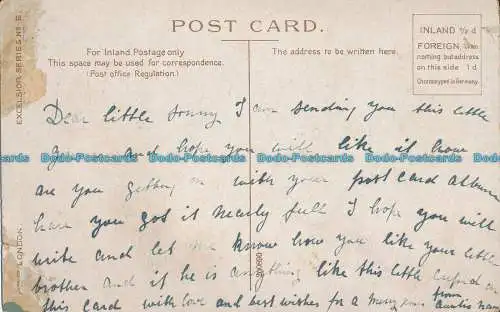 EXCELSIOR SERIES No
LONDON
POST CARD.
For Inland Postage only
This space may be used for correspondence.
(Post office Regulation.)
The address to be written here.
INLAND ½ d
FOREIGN
nothing but address
on this side 1 d.
Chromotyped in Germany.
Dear little Sonny I am sending you this little
and hope you will like it how
are you getting on with your post card album
have you got it nearly full I hope you will
write and let me know how you like your little
brother and if he is anything like this little cupid on
this card with love and best wishes for a merry xmas from
Auntie
Postcards-Auctions Postcards-Auctions Postcards-Auctions Postcards-Auctions